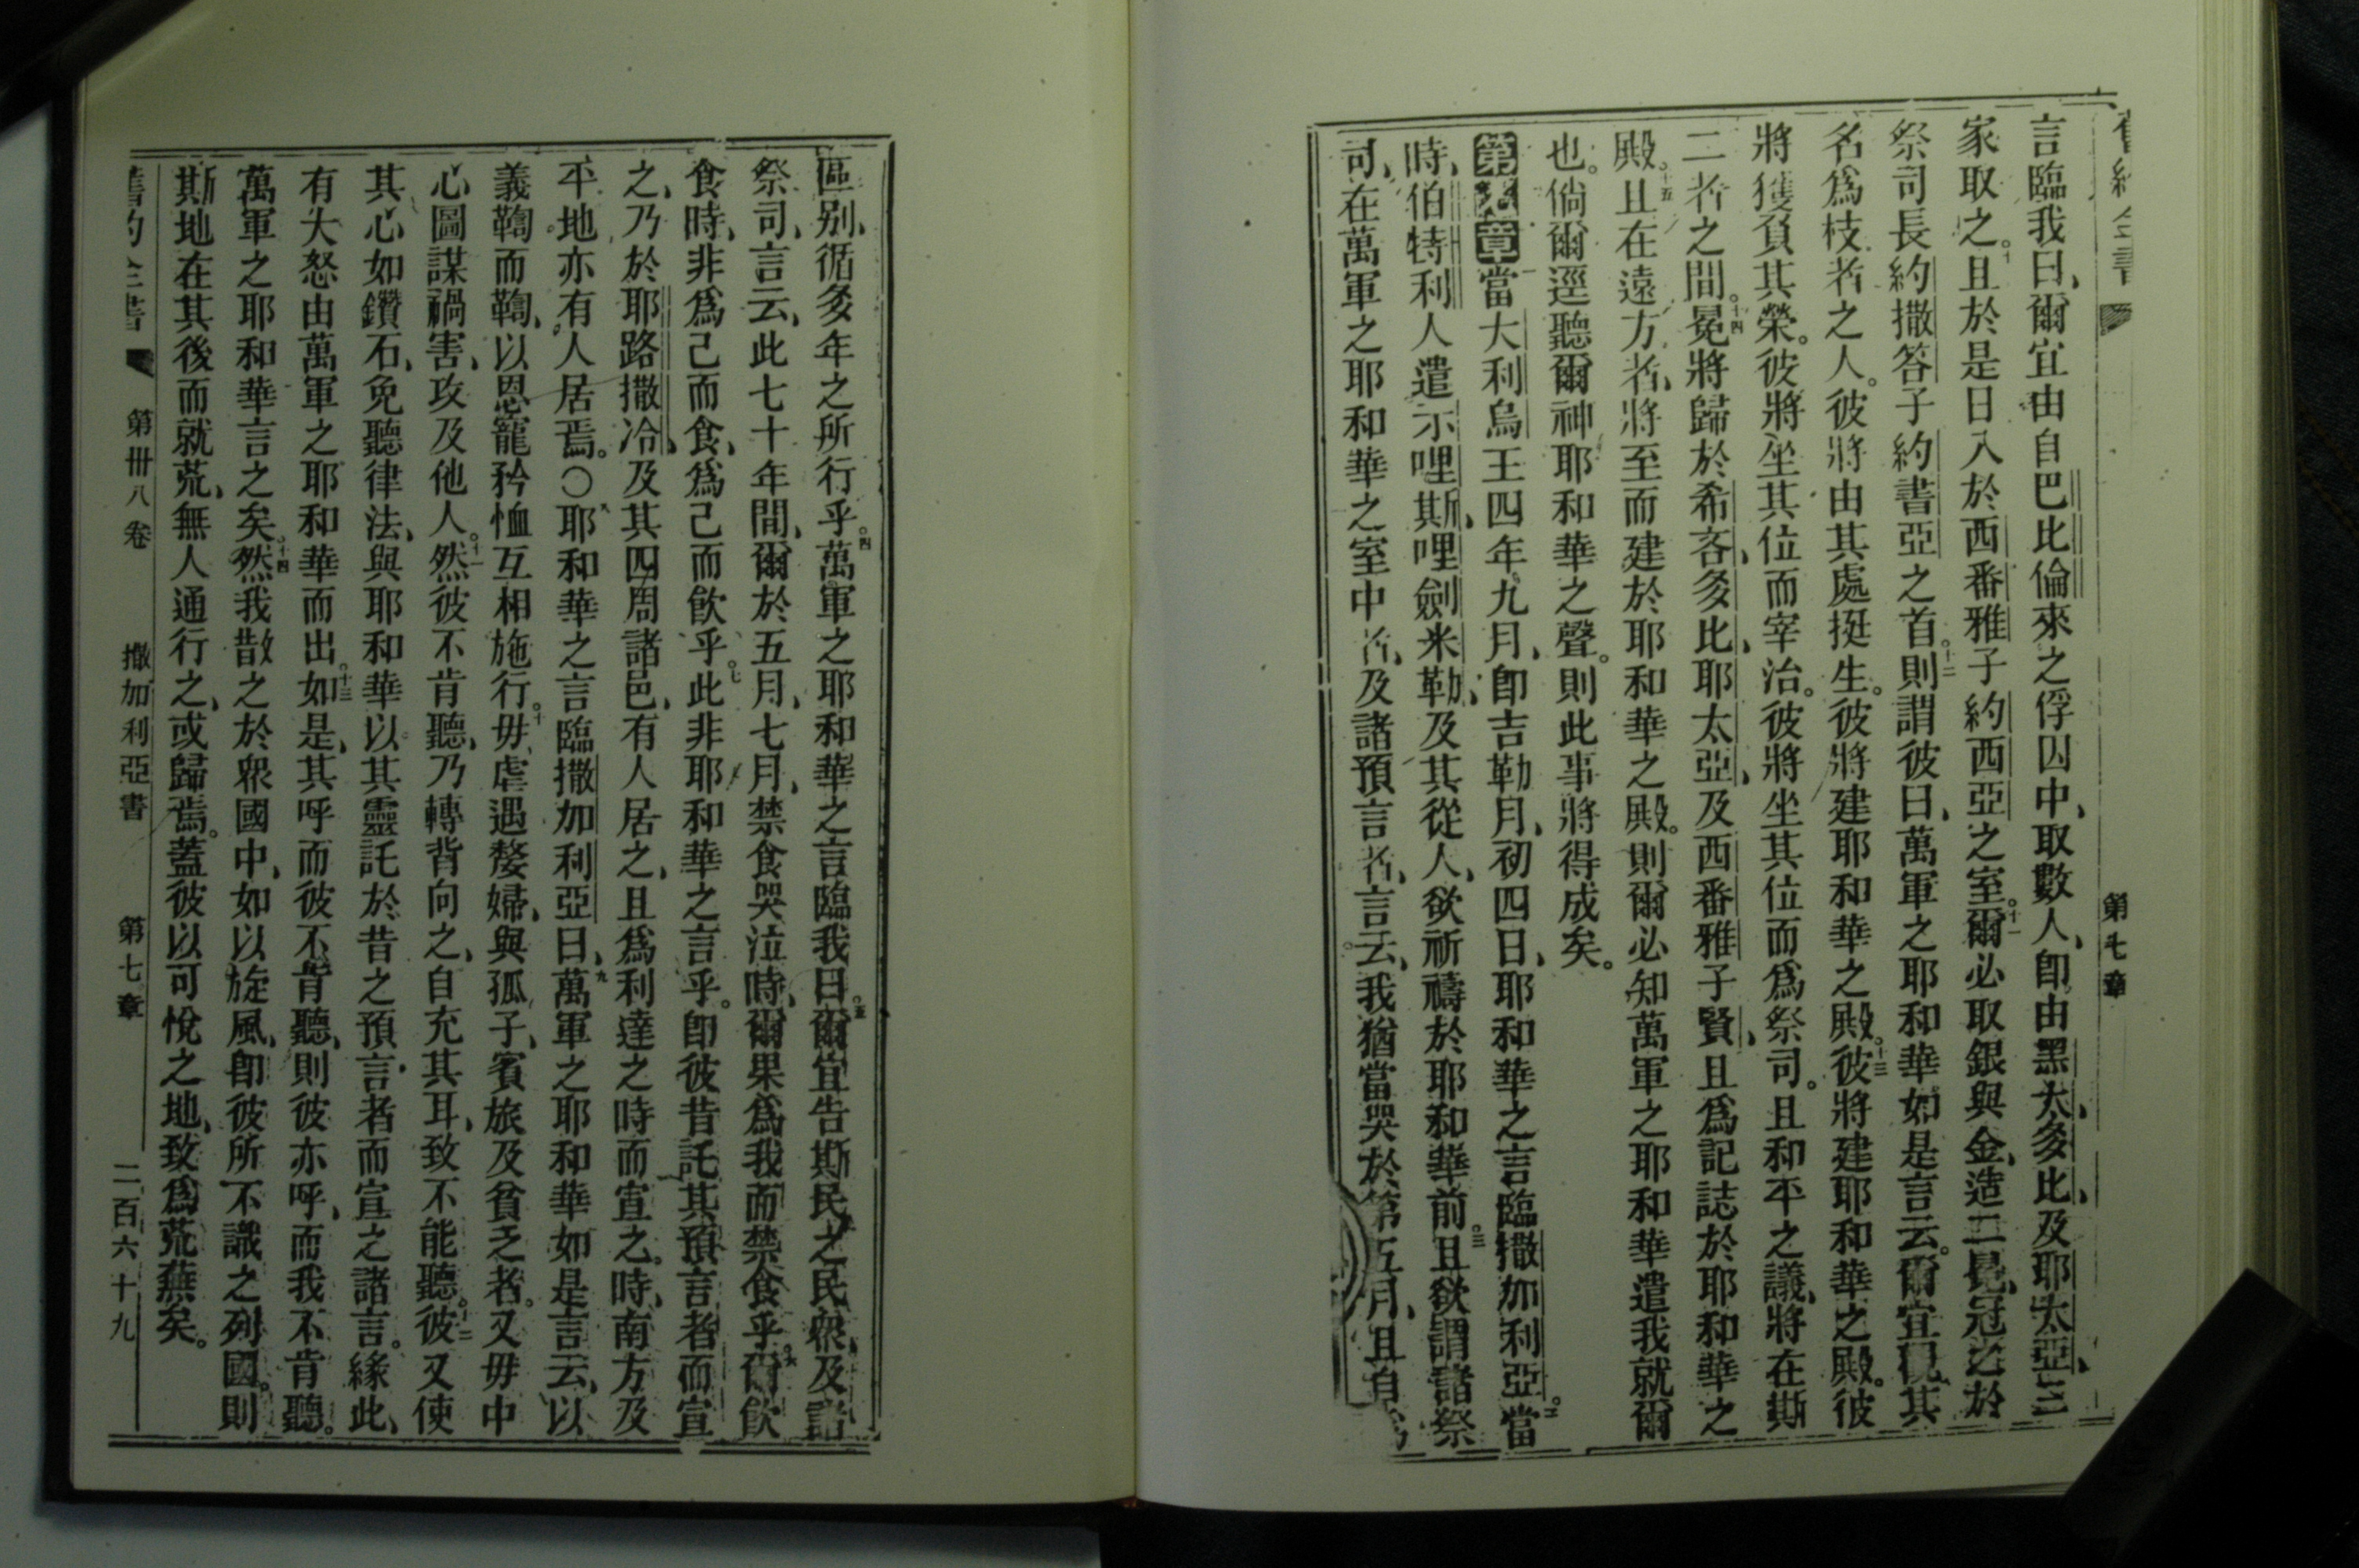 舊約全書
第七章
言臨我曰、爾宜由自巴比倫來之俘囚中、取數人、卽由黑大、多比、及耶太亞、三
家取之。十且於是日入於西番雅子約西亞之室。十一爾必取銀與金、造二冕、冠之於
祭司長約撒答子約書亞之首。十二則謂彼曰、萬軍之耶和華如是言云。爾宜視其
名爲枝者之人。彼將由其處挺生。彼將建耶和華之殿。十三彼將建耶和華之殿。彼
將獲負其榮。彼將坐其位而宰治。彼將坐其位而爲祭司。且和平之議、將在斯
二者之間。十四冕將歸於希吝、多比、耶太亞、及西番雅子賢、且爲記誌於耶和華之
殿。十五且在遠方者、將至而建於耶和華之殿。則爾必知萬軍之耶和華遣我就爾
也。倘爾逕聽爾神耶和華之聲。則此事將得成矣。
第七章當大利烏王四年九月、卽吉勒月、初四日、耶和華之言臨撒加利亞。二當
時、伯特利人遣示哩斯、哩劍米勒、及其從人、欲祈禱於耶和華前。三且欲謂諸祭
司、在萬軍之耶和華之室中者、及諸預言者、言云、我猶當哭於第五月、且自
區别、循多年之所行乎。四萬軍之耶和華之言臨我曰。五爾宜告斯民之民衆、及諸
祭司、言云、此七十年間、爾於五月、七月、禁食哭泣時、爾果爲我而禁食乎。六爾飮
食時、非爲己而食、爲己而飮乎。七此非耶和華之言乎。卽彼昔託其預言者而宣
之、乃於耶路撒冷、及其四周諸邑、有人居之、且爲利達之時而宣之。時、南方及
平地亦有人居焉。○八耶和華之言臨撒加利亞曰、九萬軍之耶和華如是言云、以
義鞫而鞫、以恩寵矜恤互相施行。十毋虐遇嫠婦、與孤子、賓旅及貧乏者。又毋中
心圖謀禍害、攻及他人。十一然彼不肯聽、乃轉背向之、自充其耳、致不能聽。十二彼又使
其心如鑽石、免聽律法、與耶和華以其靈託於昔之預言者而宣之諸言。緣此、
有大怒由萬軍之耶和華而出。十三如是、其呼而彼不肯聽、則彼亦呼、而我不肯聽。
萬軍之耶和華言之矣。十四然我散之於衆國中、如以旋風、卽彼所不識之列國。則
斯地在其後而就荒、無人通行之、或歸焉。蓋彼以可悅之地、致爲荒蕪矣。
舊約全書
第卌八卷
撒加利亞書
第七章
二百六十九